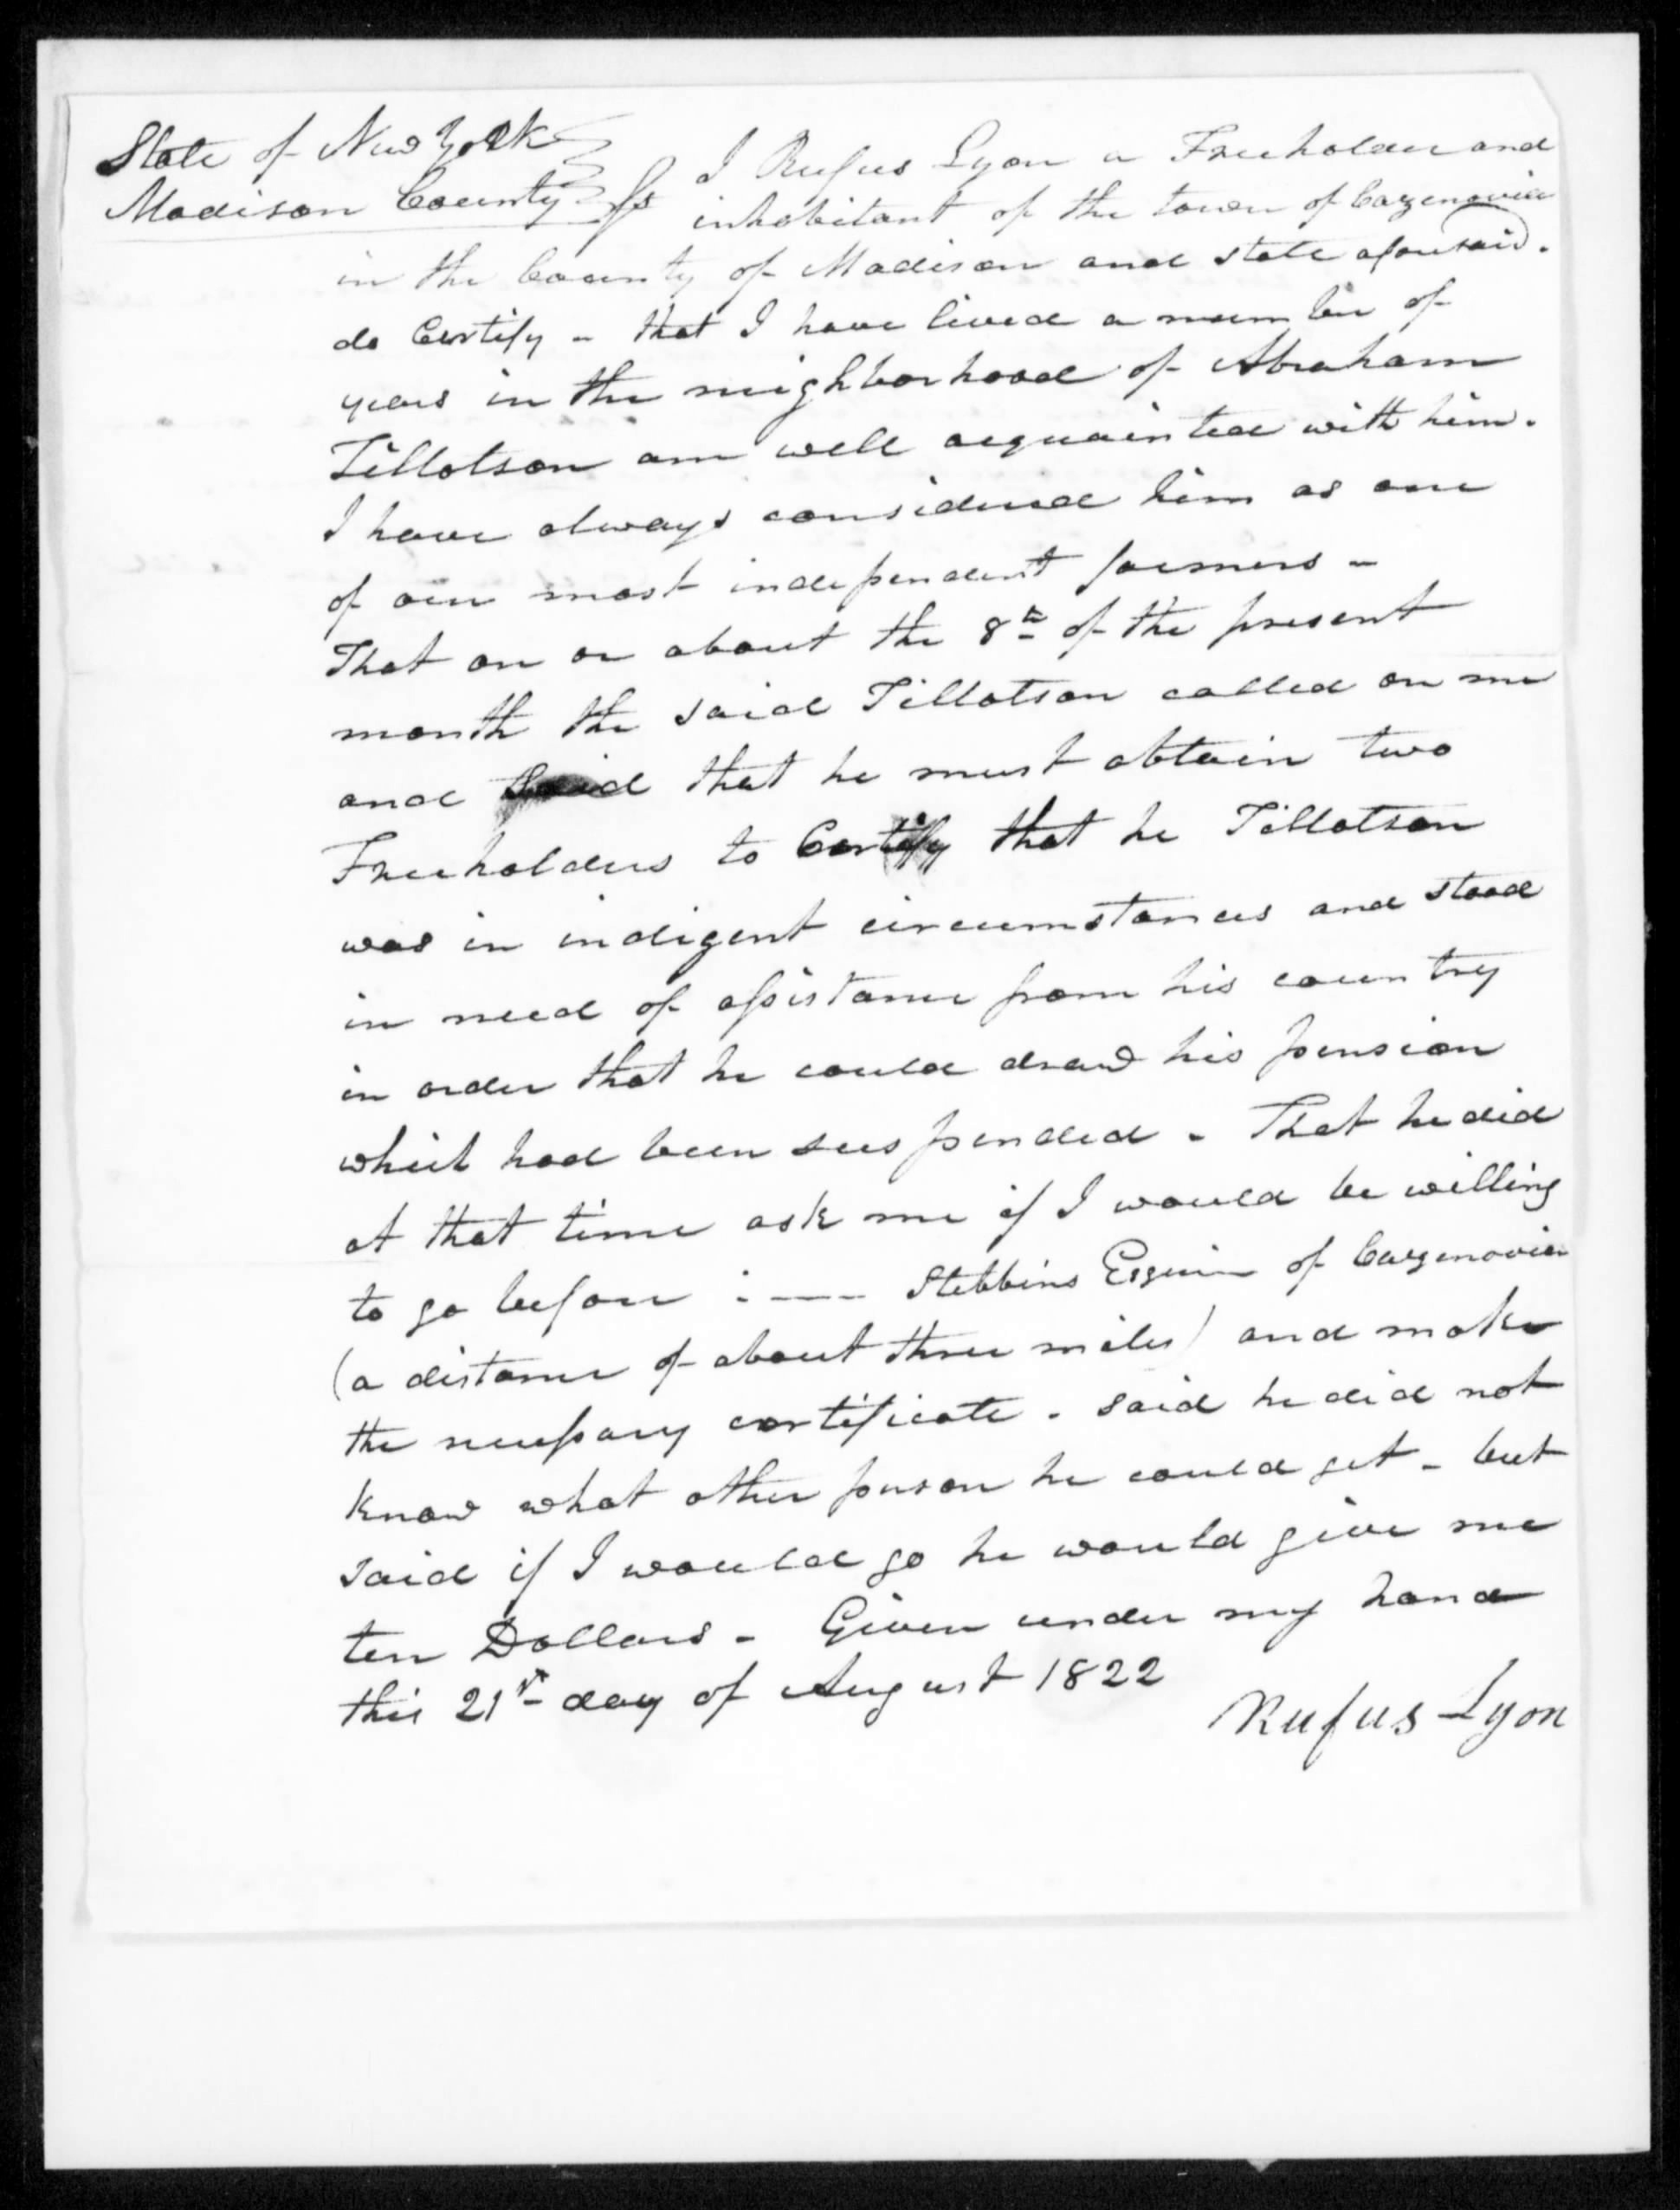 State of New York
Madison County Ss I Rufus Lyon a Freeholder and
inhabitant of the town of Cazenovia
in the County of Madison and state aforesaid.
do Certify - that I have lived a number of
years in the neighborhood of Abraham
Tillotson am well acquainted with him.
I have always considered him as one
of our most independent farmers -
That on or about the 8th of the present
month the said Tillotson called on me
and Said that he must obtain two
Freeholders to Certify that he Tillotson
was in indigent circumstances and stood
in need of assistance from his country
in order that he could draw his pension
which had been suspended - That he did
at that time ask me if I would be willing
to go before : --- Stebbins Esquire of Cazenovia
(a distance of about three miles) and make
the necessary certificate - said he did not
know what other person he could get - but
said if I would go he would give me
ten Dollars - Given under my hand
this 21st day of August 1822
Rufus Lyon